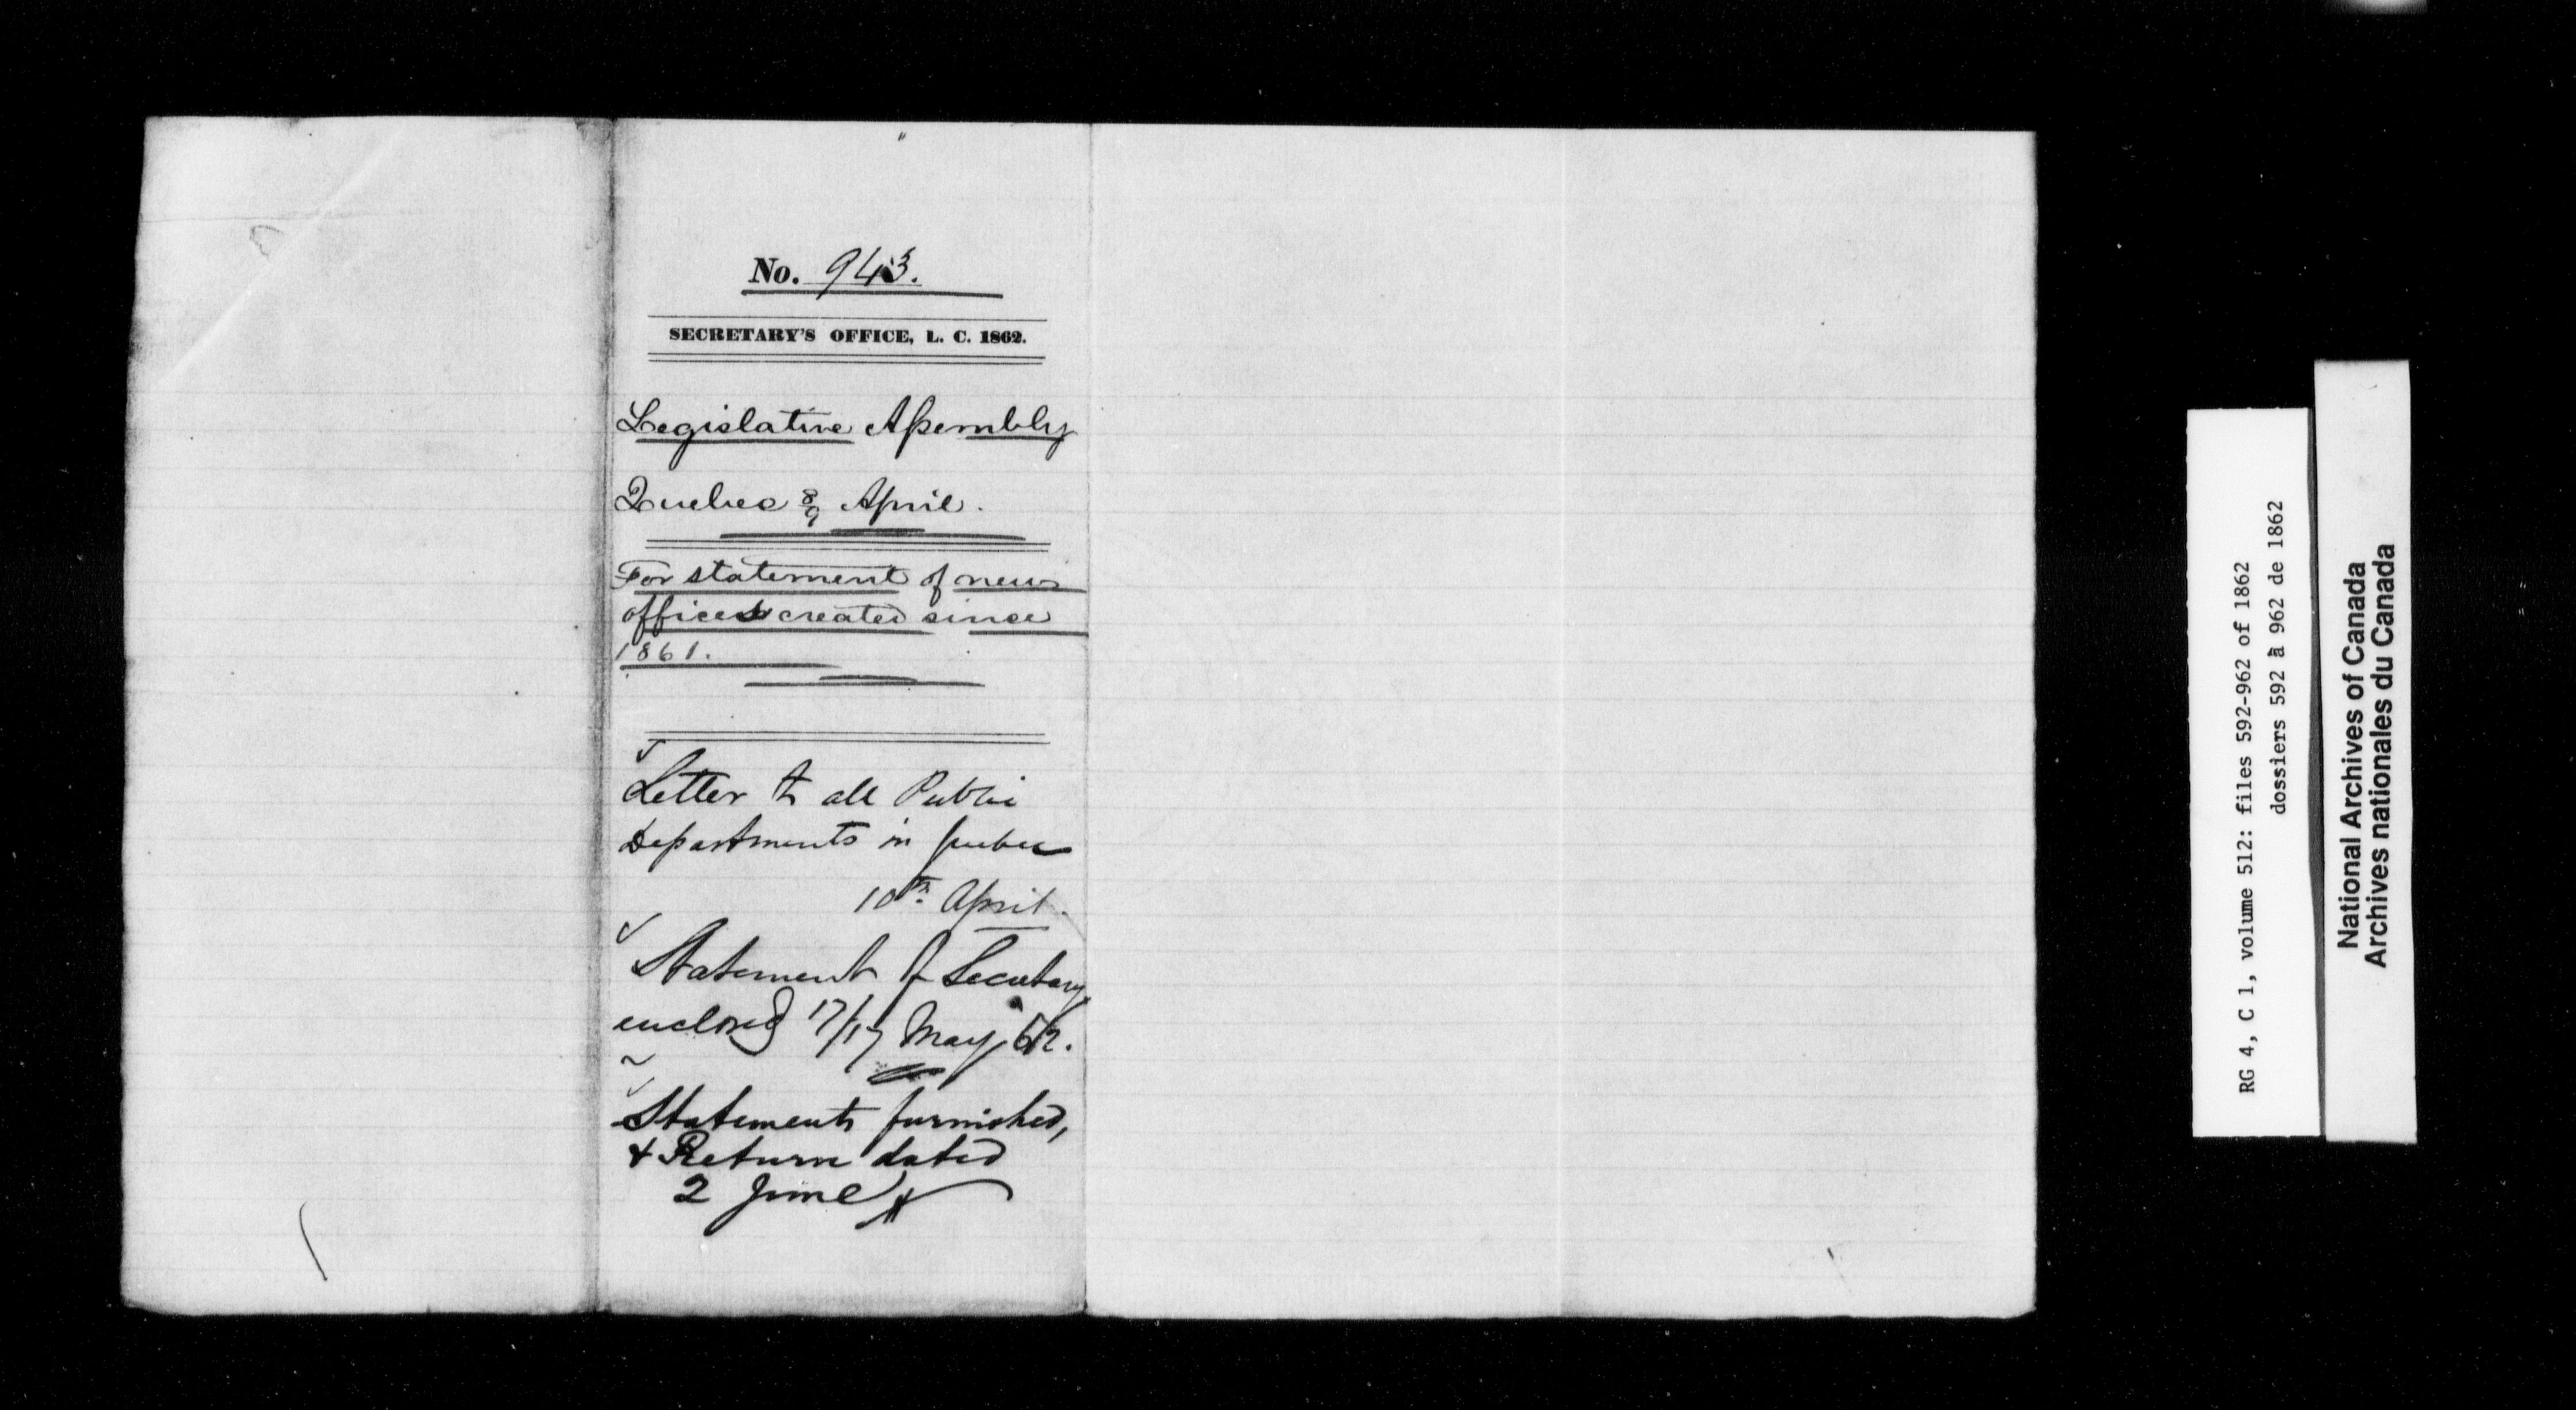 No. 943.
SECRETARY'S OFFICE, L. C. 1862.
Legislative Assembly
Quebec 8/9 April.
For statement of new
offices created since
1861.
Letter to all Public
Departments in Quebec
10th April.
Statement of Secretary
enclosed 17/17 May 62.
Statements furnished,
& Return dated
2 June
RG 4, C 1, volume 512: files 592-962 of 1862
dossiers 592 à 962 de 1862
National Archives of Canada
Archives nationales du Canada